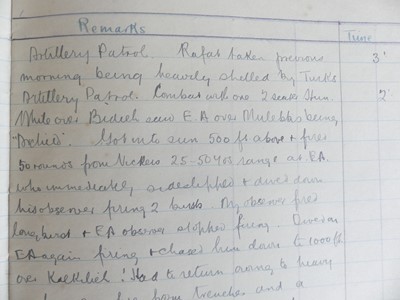 Remarks
Time
Artillery Patrol. Rafat taken previous 3'
morning being heavily shelled by Turks
Artillery Patrol. Combat with one 2 seater 2'
While over Bidieh saw E A over Mulebbis being
"Archied". Got into sun 500 ft above & fired
50 rounds from Vickers 25-50 yds range at EA.
who immediately sideslipped & dived down
his observer firing 2 bursts. My observer fired
long burst & EA observer stopped firing. Dived on
EA again firing & chased him down to 1000 ft
over Kalkilieh! Had to return owing to heavy
from trenches and a